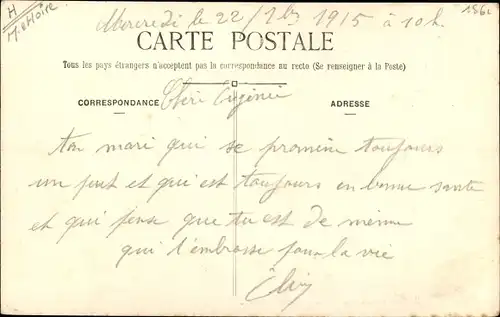 H
M. et Loire
156
Mercredi le 22/7bre 1915 à 10h
CARTE POSTALE
Tous les pays étrangers n'acceptent pas la correspondance au recto (Se renseigner à la Poste)
CORRESPONDANCE
ADRESSE
Cheri Eugénie
ton mari qui se promène toujours
un peut et qui est toujours en bonne sante
et qui pense que tu est de même
qui t'embrasse pour la vie